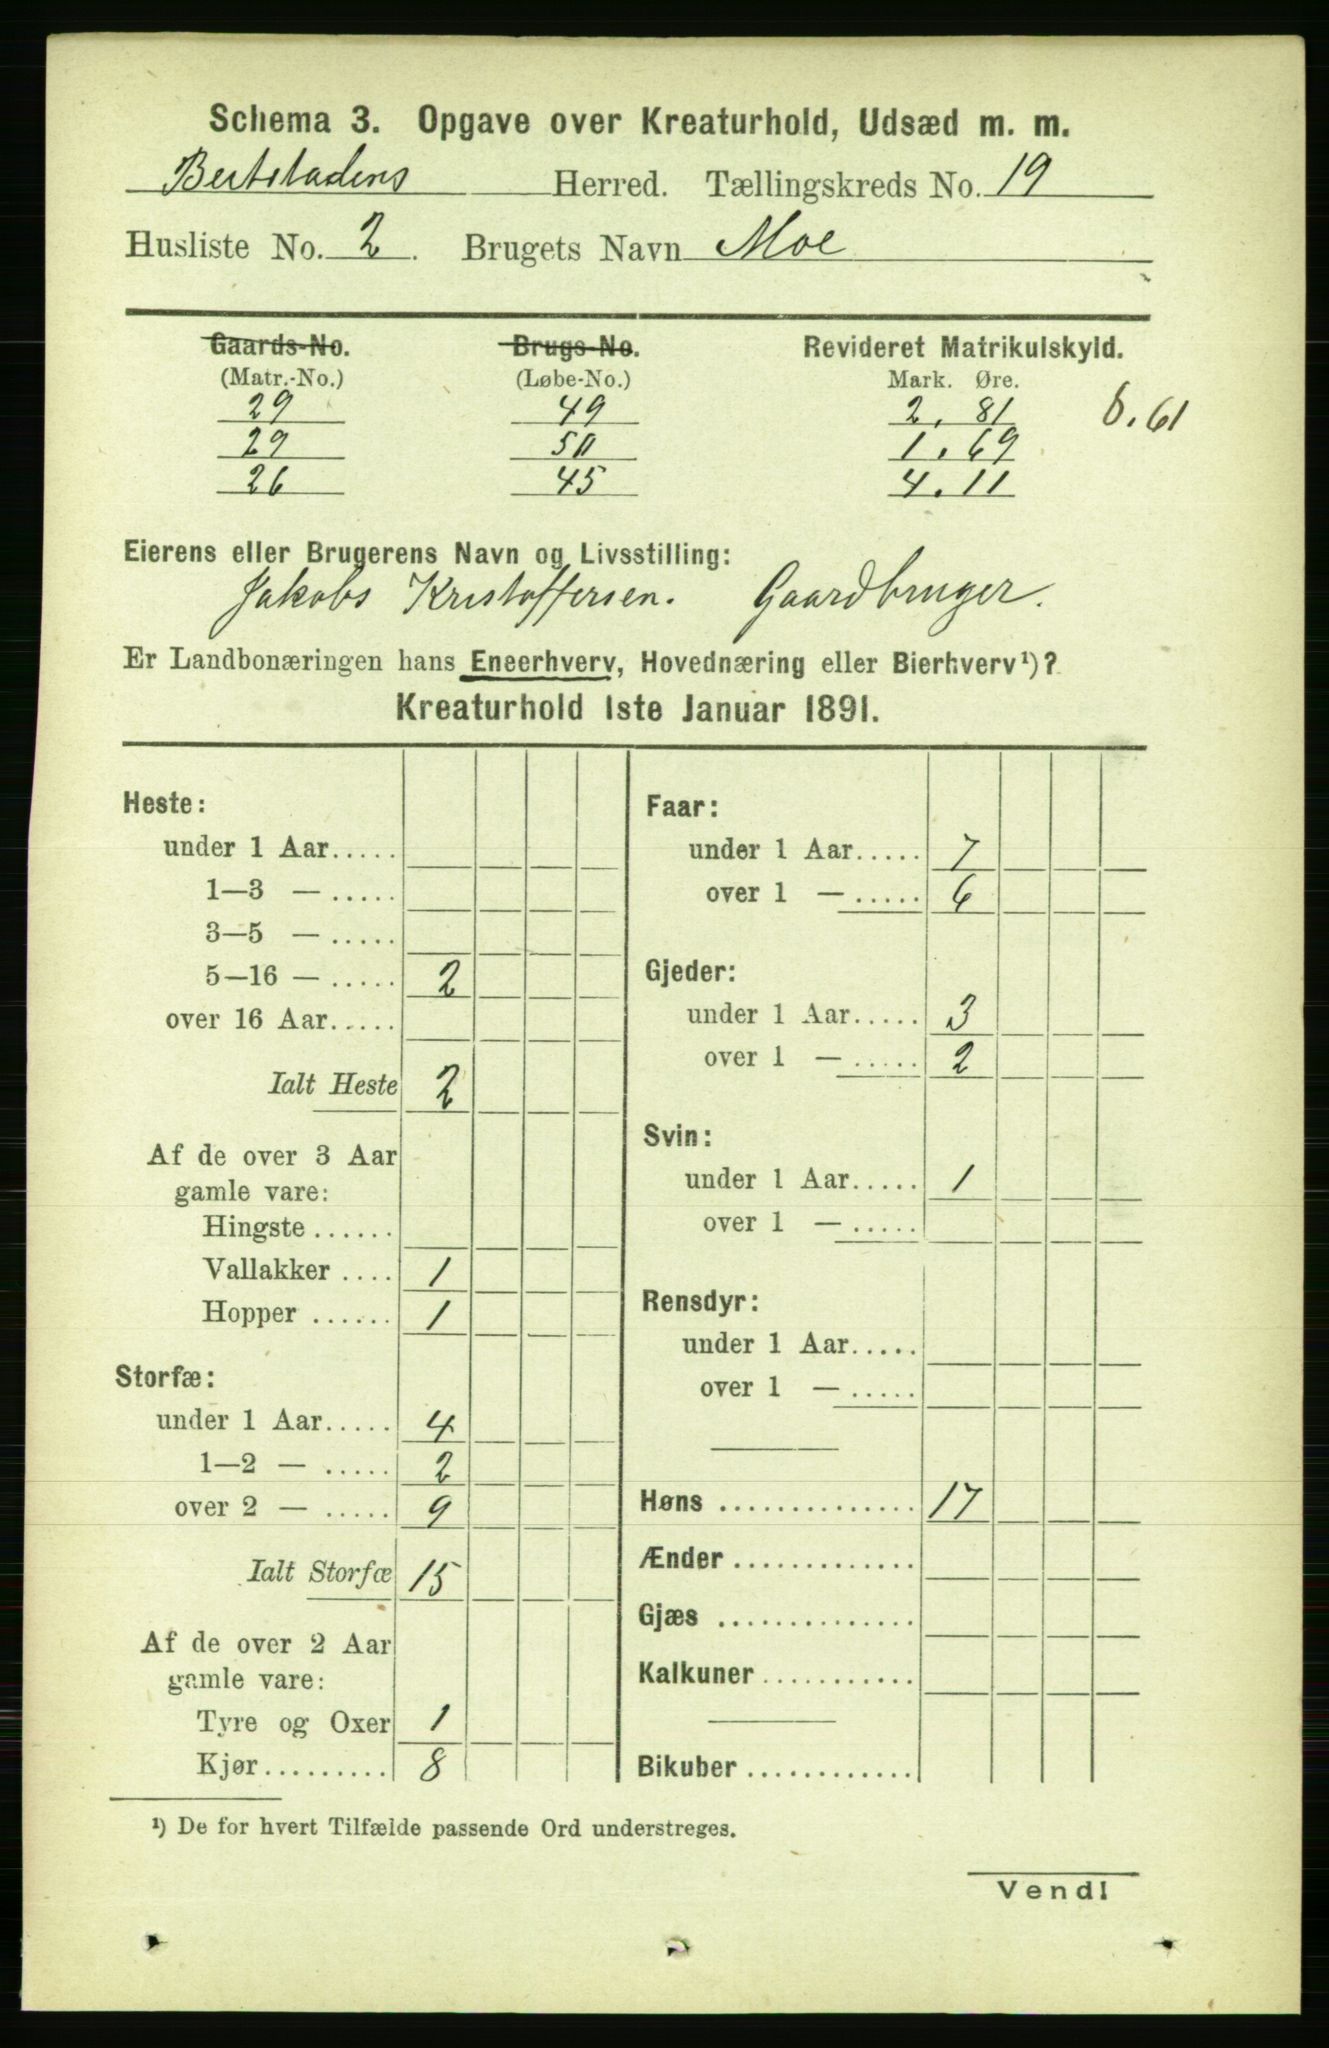 Schema 3. Opgave over Kreaturhold, Udsæd m. m.
Beitstadens Herred. Tællingskreds No. 19
Husliste No. 2. Brugets Navn Moe
Gaards-No. Brugs-No. Revideret Matrikulskyld.
(Matr.-No.) (Løbe-No.) Mark. Øre.
29 49 2. 81 8.61
29 50 1. 69
26 45 4. 11
Eierens eller Brugerens Navn og Livsstilling:
Jakobs Kristoffersen. Gaardbruger.
Er Landbonæringen hans Eneerhverv, Hovednæring eller Bierhverv¹)?
Kreaturhold 1ste Januar 1891.
Heste:
under 1 Aar.....
1—3 — .....
3—5 — .....
5—16 — ..... 2
over 16 Aar.....
Ialt Heste 2
Af de over 3 Aar
gamle vare:
Hingste ......
Vallakker .... 1
Hopper ...... 1
Storfæ:
under 1 Aar..... 4
1—2 — ..... 2
over 2 — ..... 9
Ialt Storfæ 15
Af de over 2 Aar
gamle vare:
Tyre og Oxer 1
Kjør......... 8
Faar:
under 1 Aar..... 7
over 1 — ..... 6
Gjeder:
under 1 Aar..... 3
over 1 — ..... 2
Svin:
under 1 Aar..... 1
over 1 — .....
Rensdyr:
under 1 Aar.....
over 1 — .....
Høns .............. 17
Ænder .............
Gjæs ..............
Kalkuner ...........
Bikuber ............
¹) De for hvert Tilfælde passende Ord understreges.
Vend!